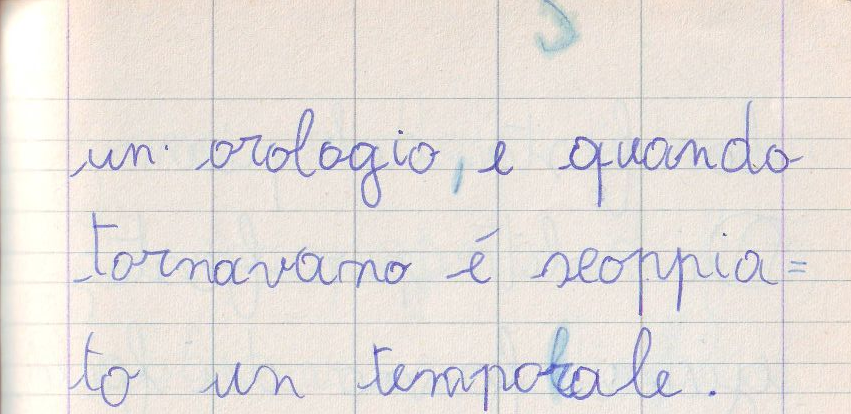 un orologio, e quando
tornavano é scoppia=
to un temporale.